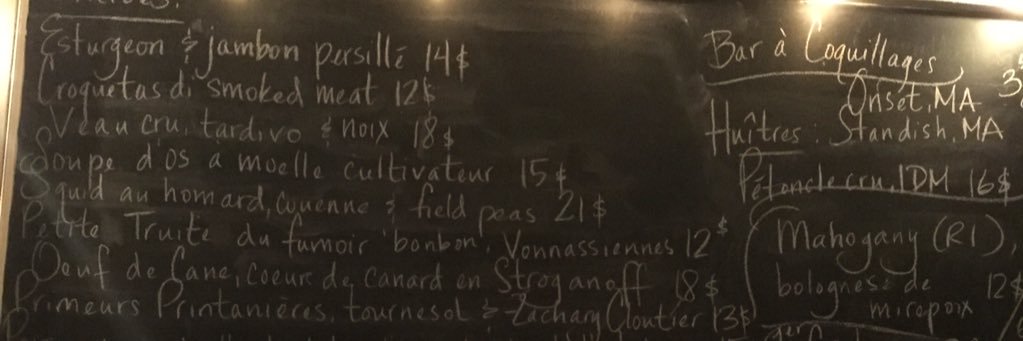 Esturgeon & jambon persillé 14$
Croquetas di smoked meat 12$
Veau cru, tardivo & noix 18$
Soupe d'os a moelle cultivateur 15$
Squid au homard, couenne & field peas 21$
Petite Truite du fumoir "bonbon", Vonnassiennes 12$
Oeuf de Cane, coeurs de canard en Stroganoff 18$
Primeurs Printanières, tournesol & Zachary Cloutier 13$
Bar à Coquillages
Onset, MA
Huîtres: Standish, MA
Pétoncle cru, IDM 16$
Mahogany (RI),
bolognese de
mirepoix 12$